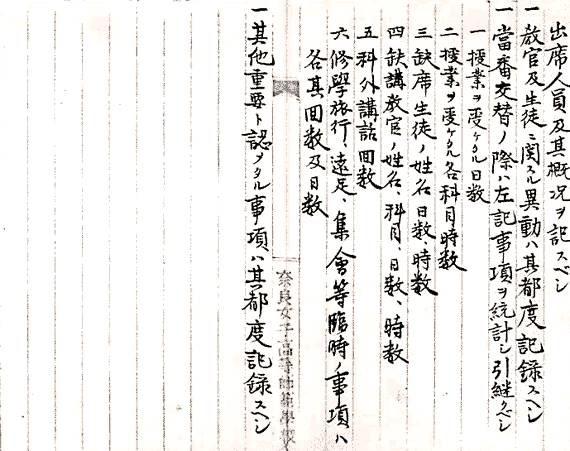 出席人員及其概況ヲ記スベシ
一教官及生徒ニ関スル異動ハ其都度記録スヘシ
一當番交替ノ際ハ左記事項ヲ統計シ引継クヘシ
一授業ヲ受ケタル日数
二授業ヲ受ケタル各科目時数
三缺席生徒ノ姓名日数、時数
四缺講教官ノ姓名、科目、日数、時数
五科外講話回数
六修學旅行、遠足、集會等臨時ノ事項ハ
各其回数及日数
奈良女子高等師範學校
一其他重要ト認メタル事項ハ其都度記録スヘシ